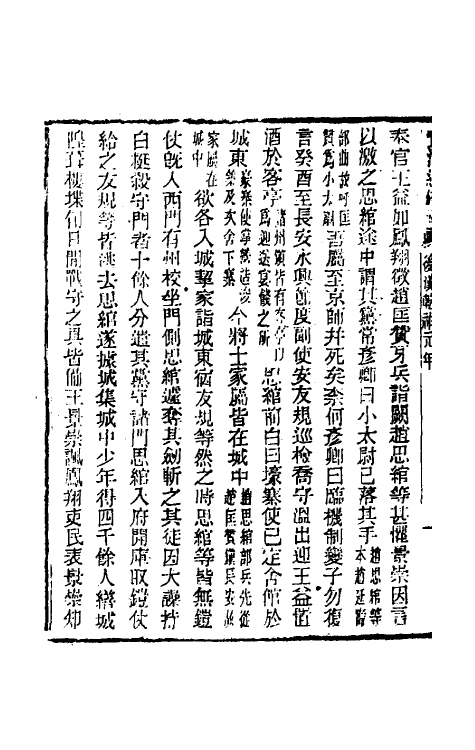 後漢乾祐元年
奉官王益如鳳翔徵趙匡贊牙兵詣闕趙思綰等甚懼景崇因言
以激之思綰途中謂其黨常彥卿曰小太尉已落其手趙思綰等本趙延壽
部曲故呼匡贊爲小太尉吾屬至京師并死矣奈何彥卿曰臨機制變子勿復
言癸酉至長安永興節度副使安友規巡檢喬守溫出迎王益置
酒於客亭諸州鎮皆有客亭以爲迎送宴餞之所思綰前白曰壕寨使已定舍館於
城東壕寨使掌營造浚築及次舍下寨今將士家屬皆在城中趙思綰部兵先從趙匡贊鎮長安故
家屬在城中欲各入城挈家詣城東宿友規等然之時思綰等皆無鎧
仗旣入西門有州校坐門側思綰遽奪其劍斬之其徒因大譟持
白梃殺守門者十餘人分遣其黨守諸門思綰入府開庫取鎧仗
給之友規等皆逃去思綰遂據城集城中少年得四千餘人繕城
隍葺樓堞旬日間戰守之具皆備王景崇諷鳳翔吏民表景崇知